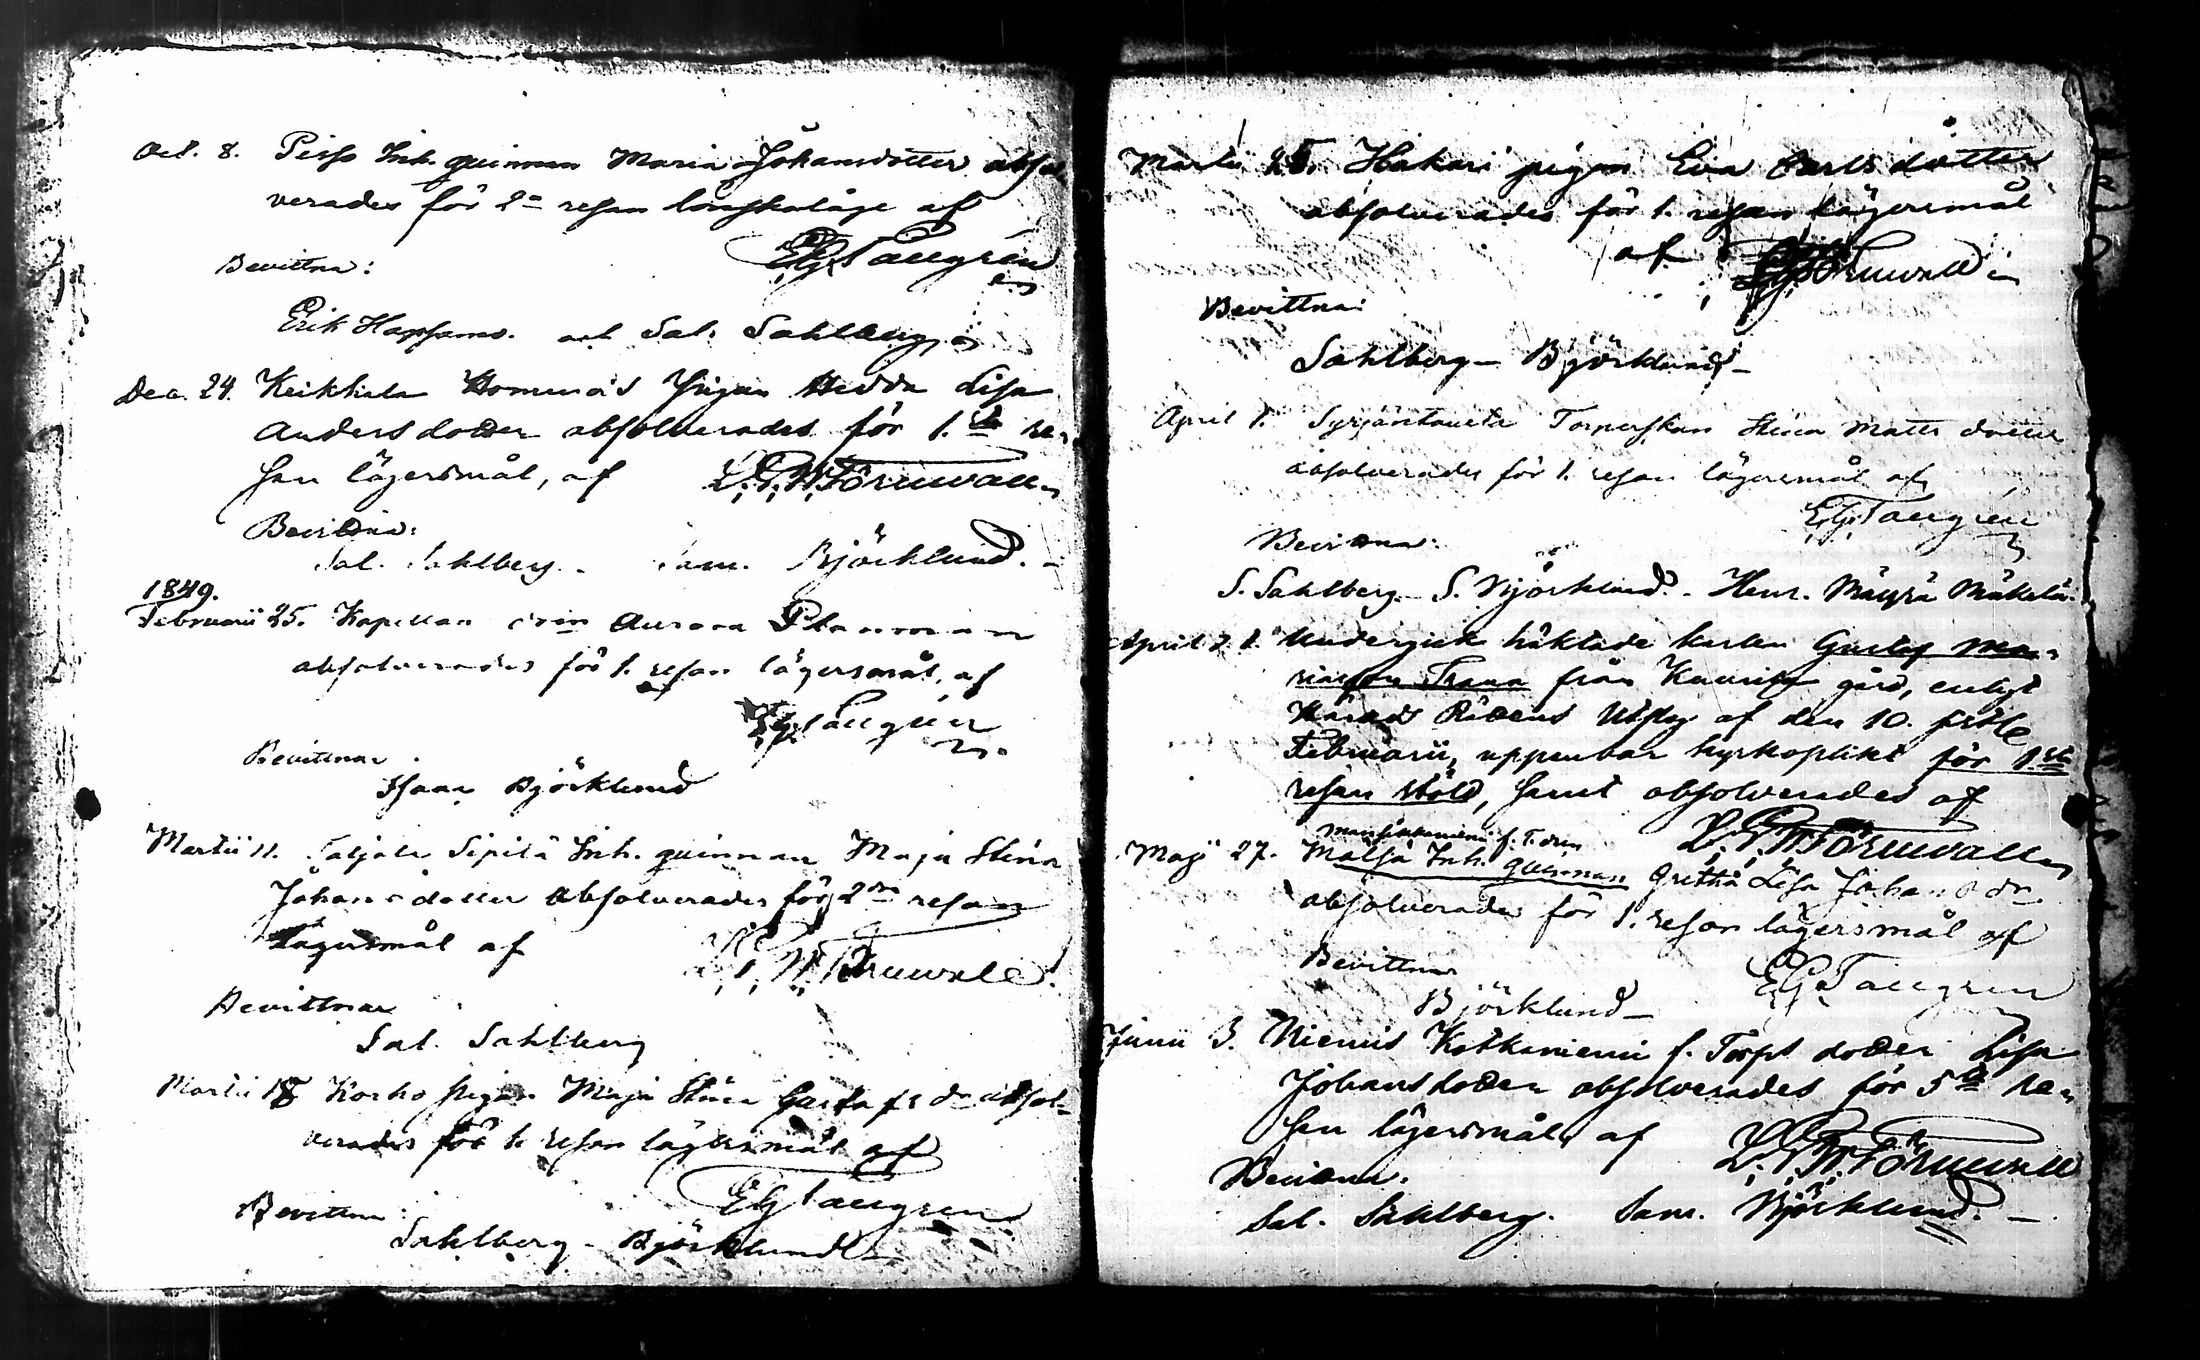 Oct. 8. Peiso Inh. quinnan Maria Johansdotter absol
verades för 2a resan lönskaläge af
EGTallgrén
Bevittna:
Erik Hapsamo. och Sal. Sahlberg
Dec. 24. Keikkala Pigan Hedda Lisa
Anders dotter absolverades för 1.sta re-
san lägersmål, af L.P.W.Törnwall
Bevittna:
Sal. Sahlberg. Sam. Björklund.
1849.
Februarii 25. Kapellan Aurora Planman
absolverades för 1. resan lägersmål, af
EGTallgrén
Bevittnar
Isaac Björklund
Martii 11. Sipilä Inh. quinnan Maja Stina
Johans dotter absolverades för 2dra resan
lägersmål af L.P.W.Törnwall.
Bevittnar
Sal. Sahlberg
Martii 18 Korko pigan Maja Stina Gustafs dr absol-
verades för 1. resan lägersmål af
EGTallgren
Bevittna:
Sahlberg - Björklund
Martii 25. Hakari pigan Eva Carls dotter
absolverades för 1. resan lägersmål
af Törnwall
Bevittna:
Sahlberg - Björklund -
April 1. Syrjäntausta Torperskan Stina Matts dotter
absolverades för 1. resan lägersmål af
E.G.Tallgrén
Bevittna:
S. Sahlberg - S. Björklund. - Henr. Mäyrä Mäkelä.
April Undergick häktade karlen Gustaf Ma-
riasson Trana från gård, enligt
Härads Rättens Utslag af den 10. sistl.
Februarii, uppenbar kyrkoplikt för 1sta
resan stöld, samt absolverades af
L.P.W.Törnwall
Mansikkaniemi f. T. dren
Maji 27. Maljá Inh. quinnan Gretha Lisa Johans dr
absolverades för 1. resan lägersmål af
Bevittna
EGTallgren
Björklund -
Junii 3. Niemis Kotkaniemi f. Torps dotter Lisa
Johansdotter absolverades för 5te re-
san lägersmål, af L.P.W.Törnwall
Bevittna.
Sal. Sahlberg. Sam. Björklund. -